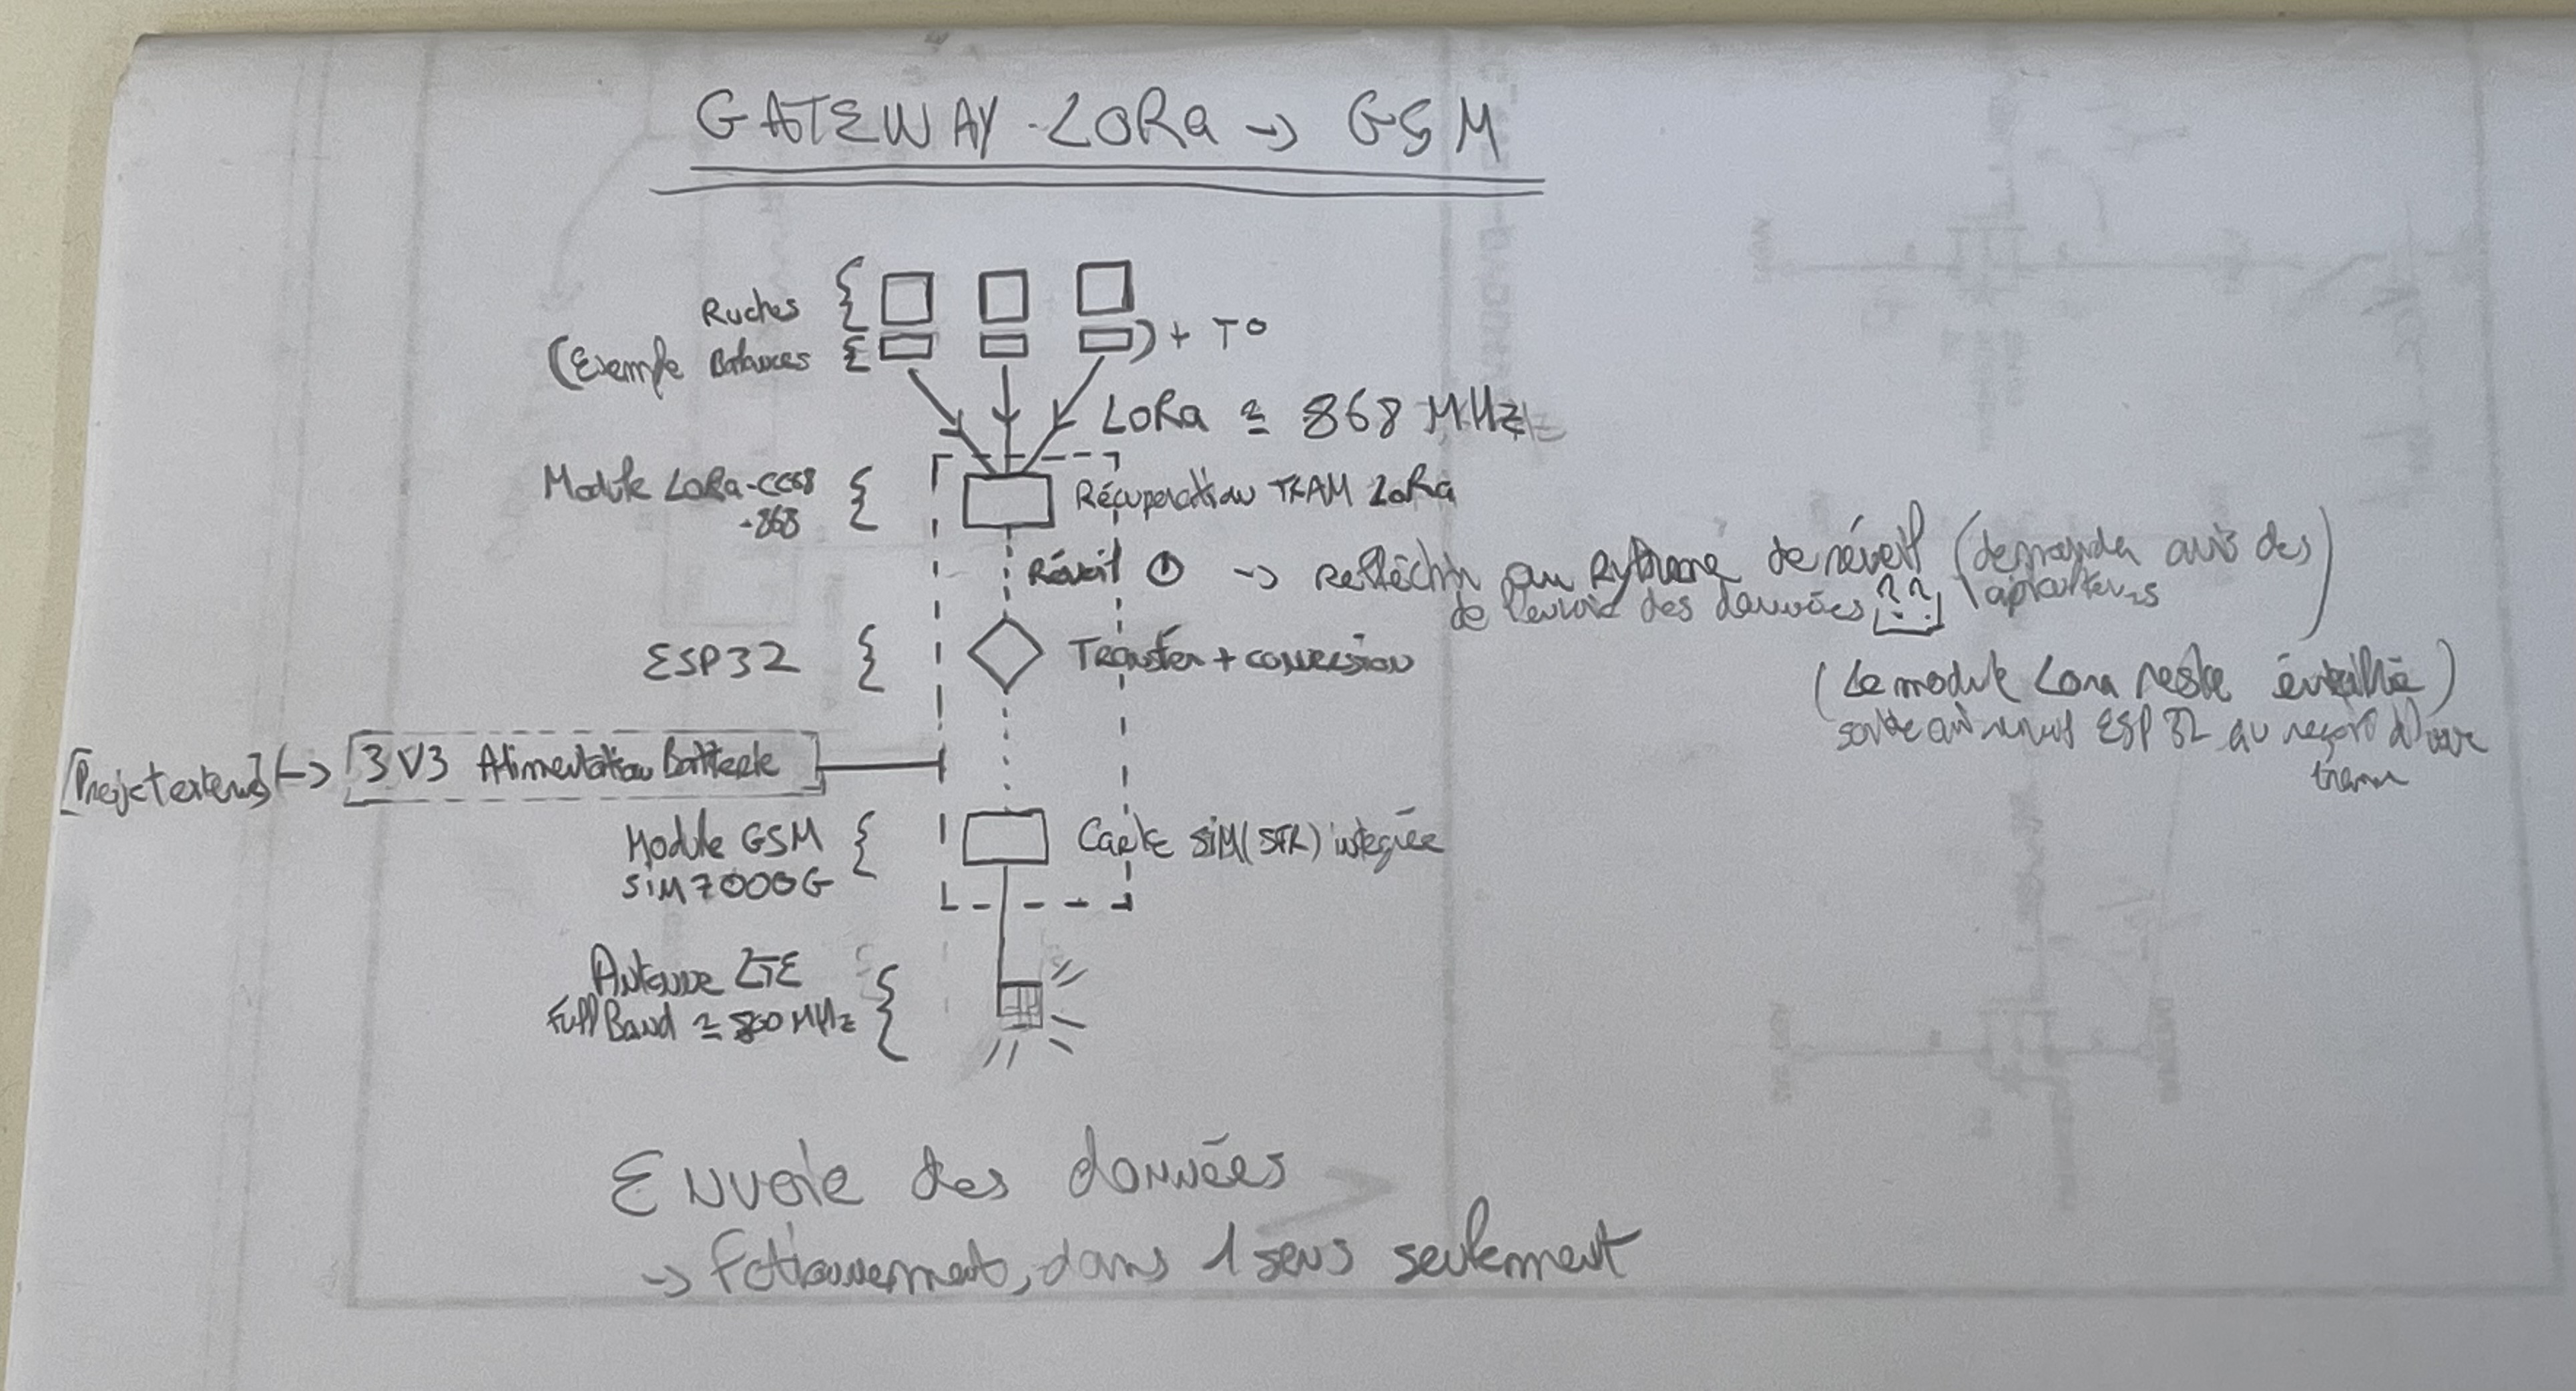 GATEWAY LoRa -> GSM
Ruches
(Exemple Balances
) + T°
LoRa ≃ 868 MHz
Module LoRa-CC68
-868
Récuperation TRAM LoRa
Réveil -> réfléchir au Rythme de réveil (demander avis des
de l'envoie des données ?? apiculteurs)
ESP32
Transfert + conversion
(Le module Lora reste éveillé)
ESP32 au reçoit d'une
tram
[Projet externe] -> 3V3 Alimentation Batterie
Module GSM
SIM7000G
Carte SIM ( ) integrée
Antenne LTE
Full Band ≃ 800 MHz
Envoie des données
-> Fotionnement, dans 1 sens seulement